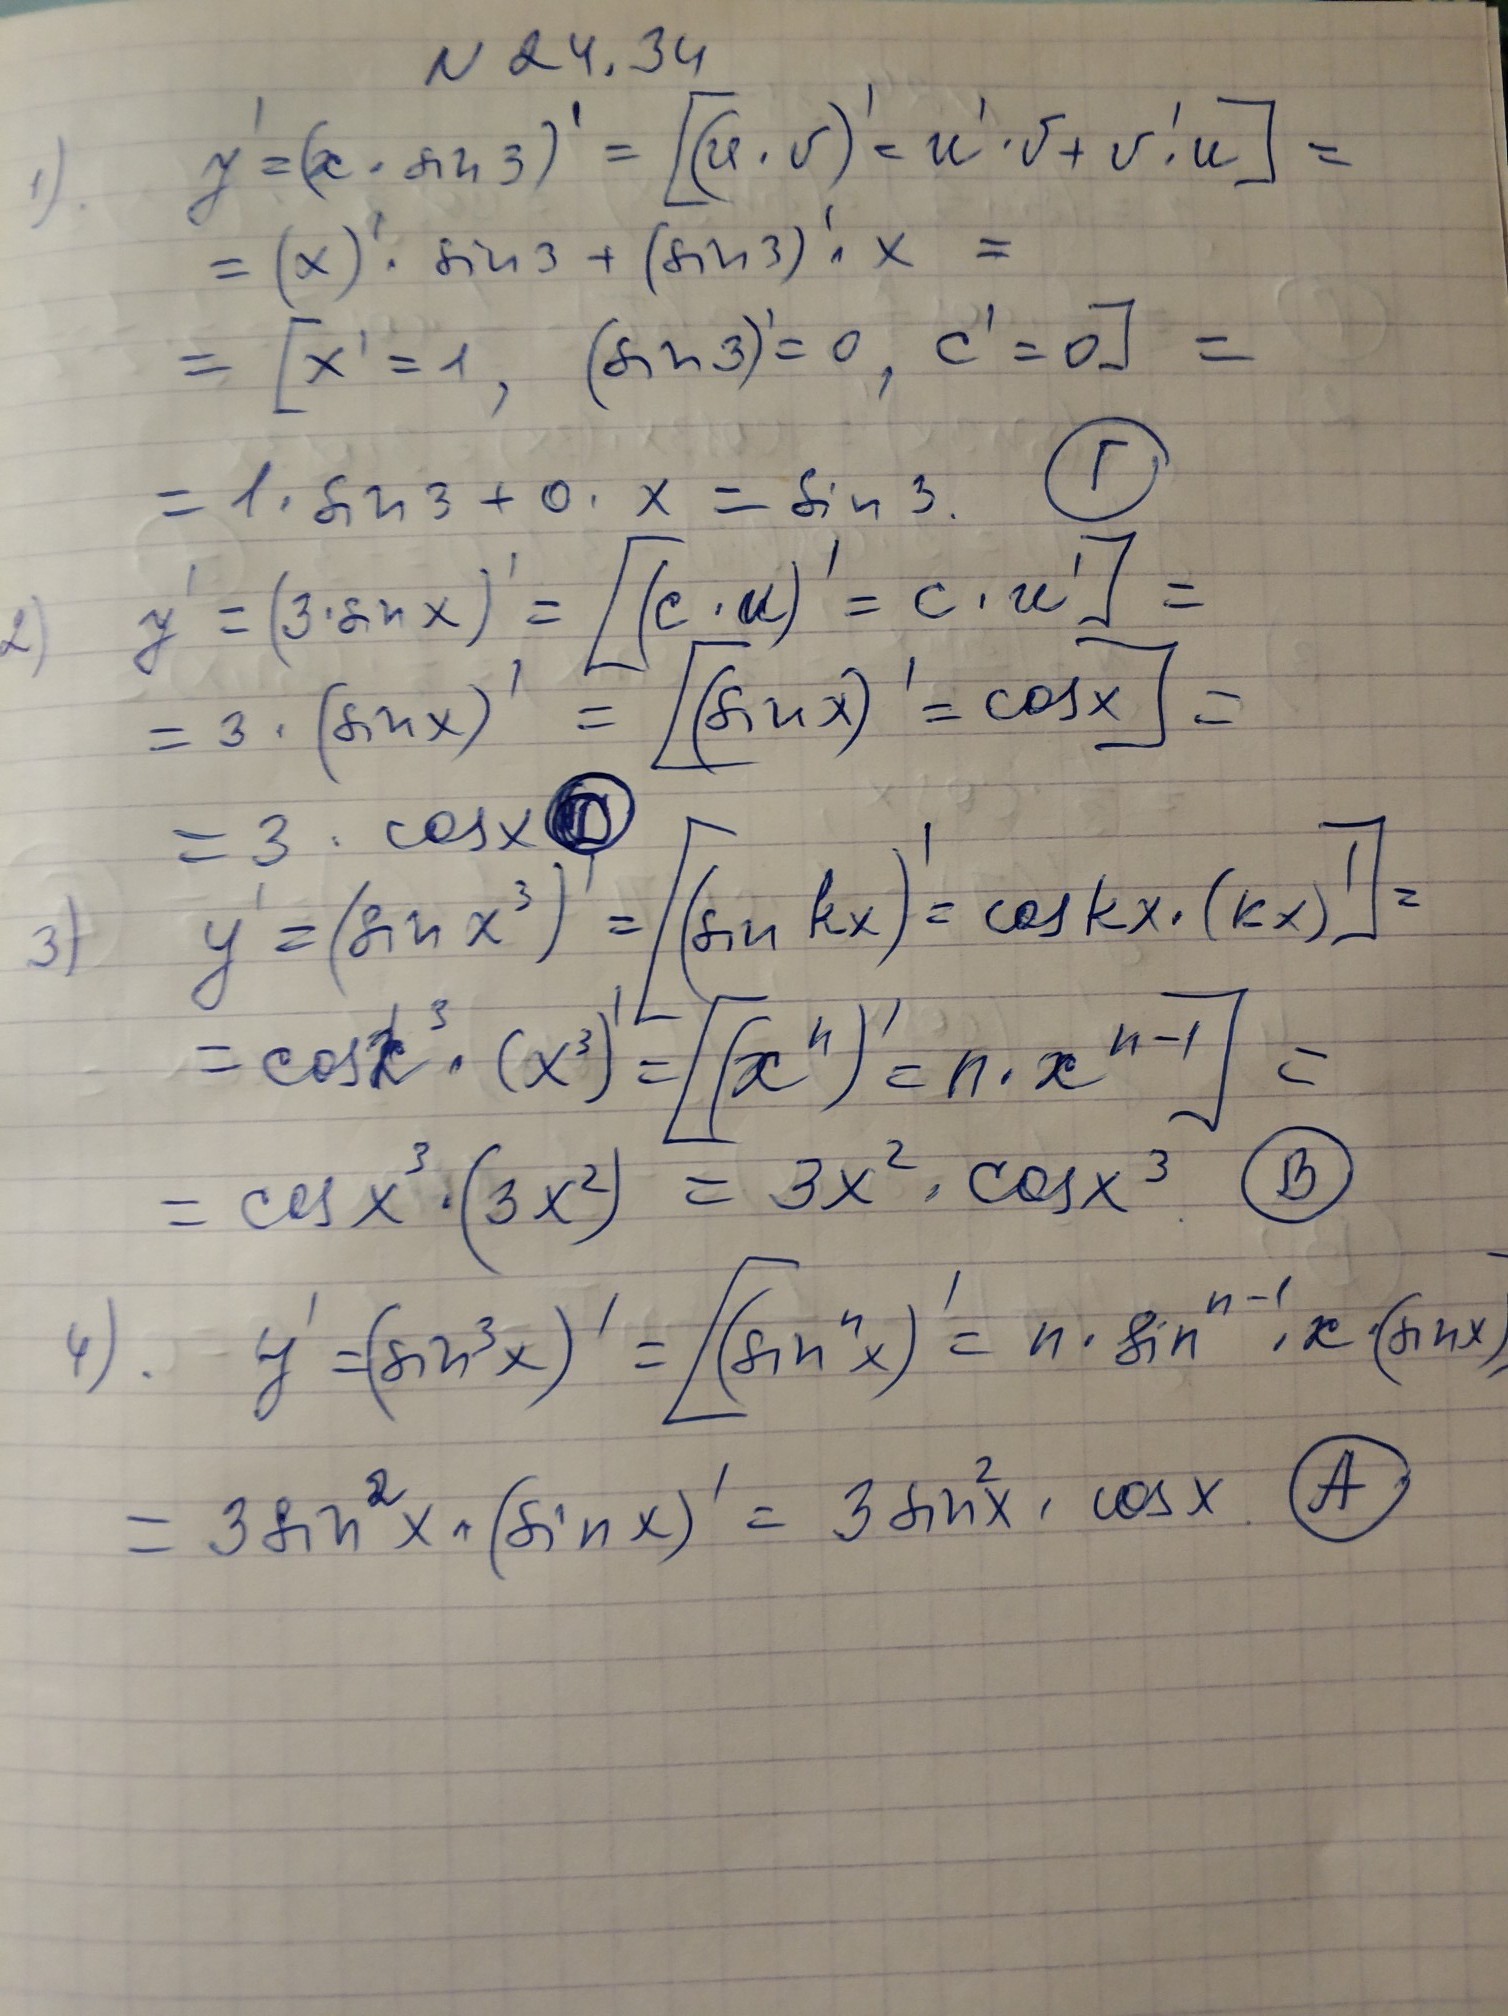 N 24.34
1). y' = (x · sin 3)' = [(u · v)' = u' · v + v' · u] =
= (x)' · sin 3 + (sin 3)' · x =
= [x' = 1, (sin 3)' = 0, c' = 0] =
= 1 · sin 3 + 0 · x = sin 3. Г
2) y' = (3 · sin x)' = [(c · u)' = c · u'] =
= 3 · (sin x)' = [(sin x)' = cos x] =
= 3 · cos x
3) y' = (sin x³)' = [(sin kx)' = cos kx · (kx)'] =
= cos x³ · (x³)' = [(xⁿ)' = n · xⁿ⁻¹] =
= cos x³ · (3x²) = 3x² · cos x³ В
4). y' = (sin³x)' = [(sinⁿx)' = n · sinⁿ⁻¹ · x · (sin x)
= 3 sin²x · (sin x)' = 3 sin²x · cos x А